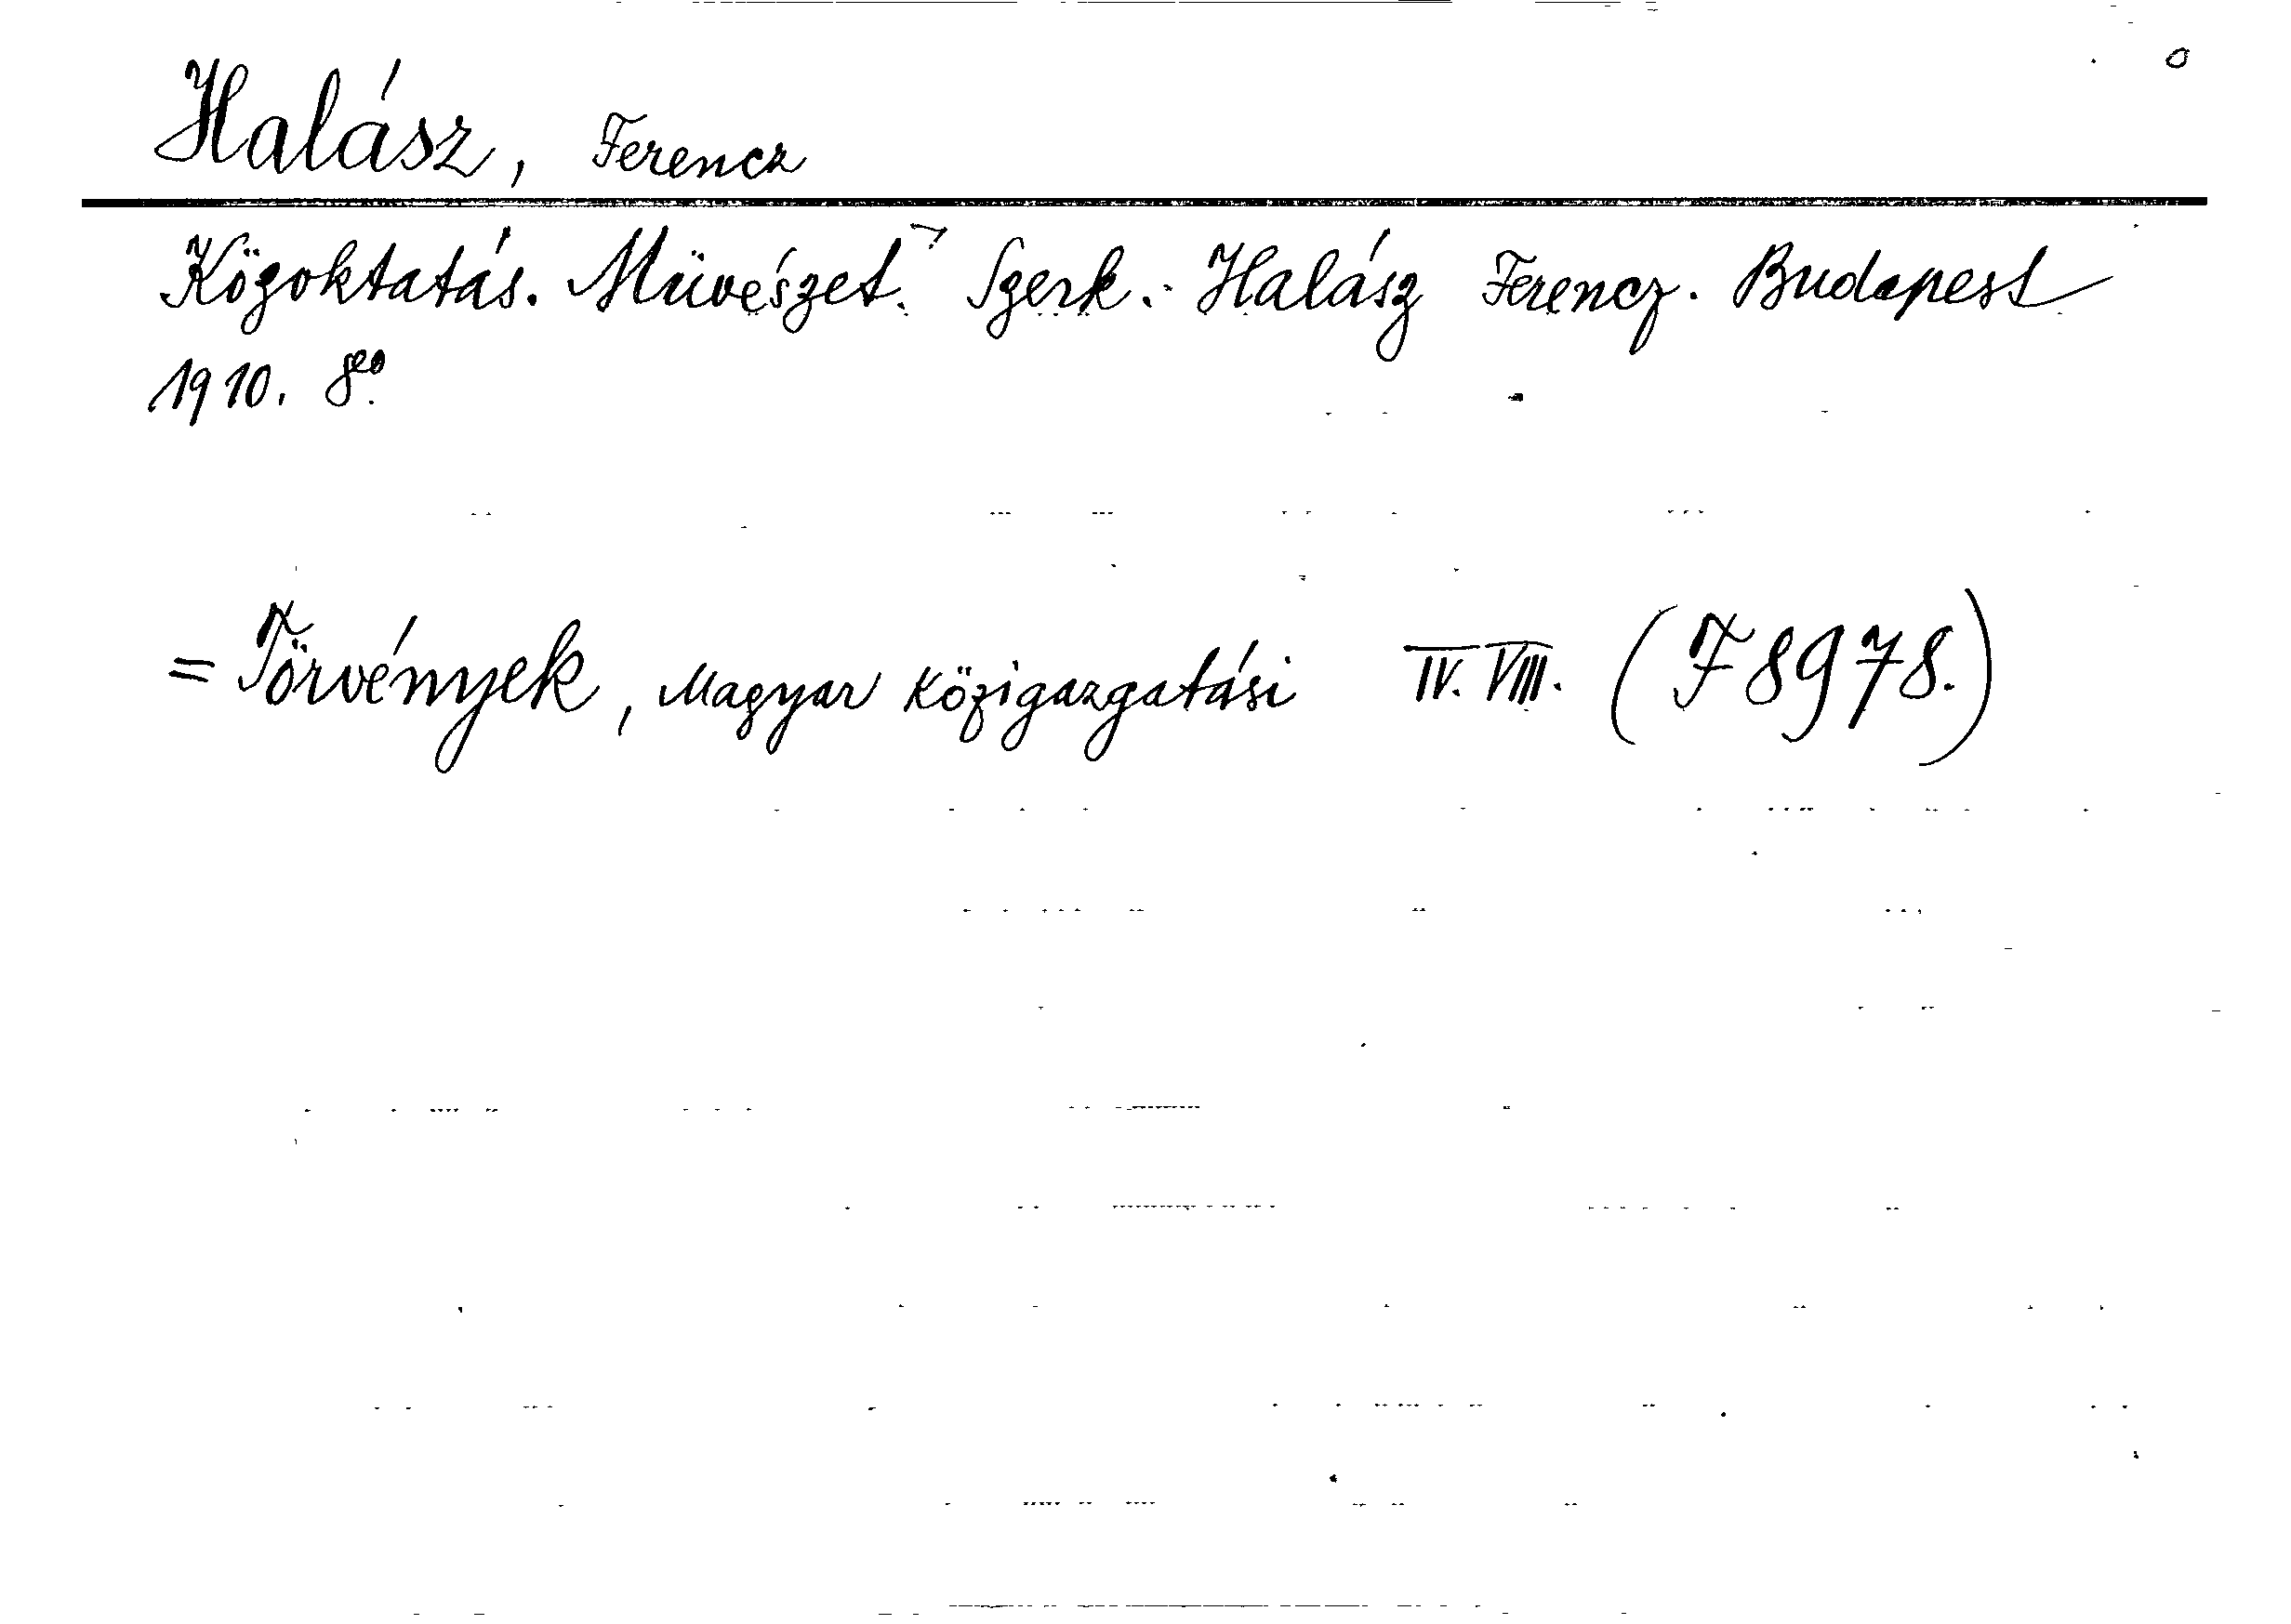 Halász, Ferencz
Közoktatás. Müvészet. Szerk. Halász Ferencz. Budapest
1910. 8eo.
= Törvények, Magyar közigazgatási IV. VIII. (F 8978.)